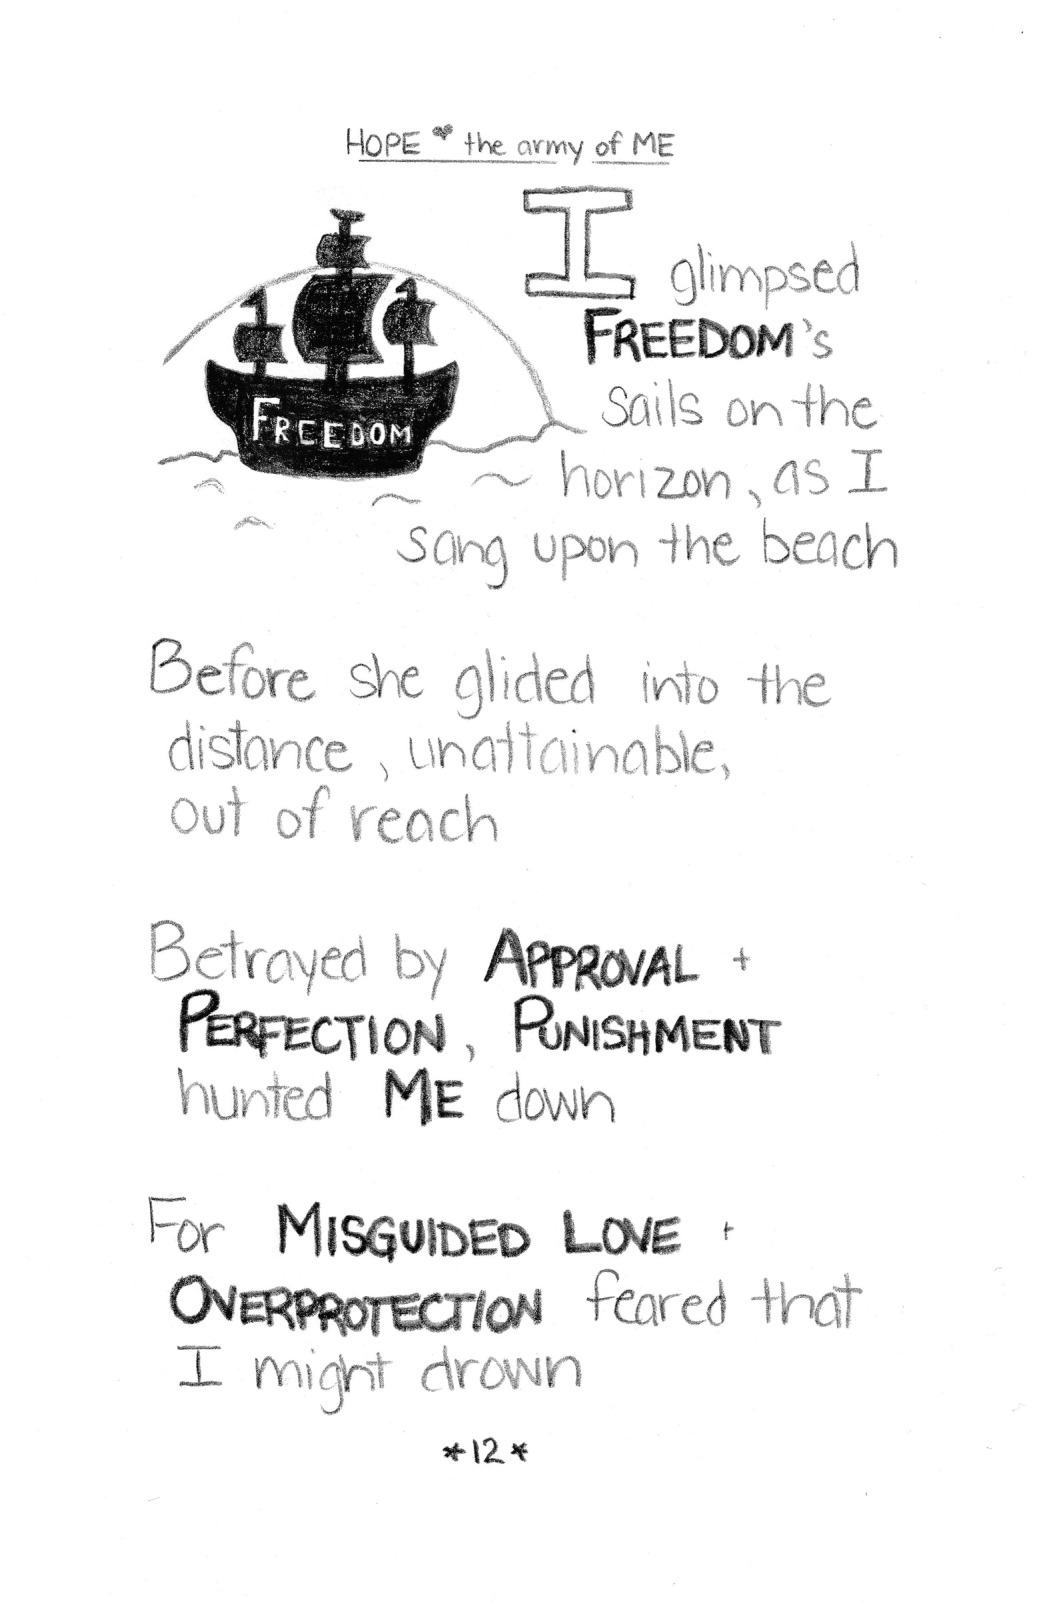 HOPE ♥ the army of ME
I glimpsed
FREEDOM's
sails on the
FREEDOM
horizon, as I
sang upon the beach
Before she glided into the
distance, unattainable,
out of reach
Betrayed by APPROVAL +
PERFECTION, PUNISHMENT
hunted ME down
For MISGUIDED LOVE +
OVERPROTECTION feared that
I might drown
*12*